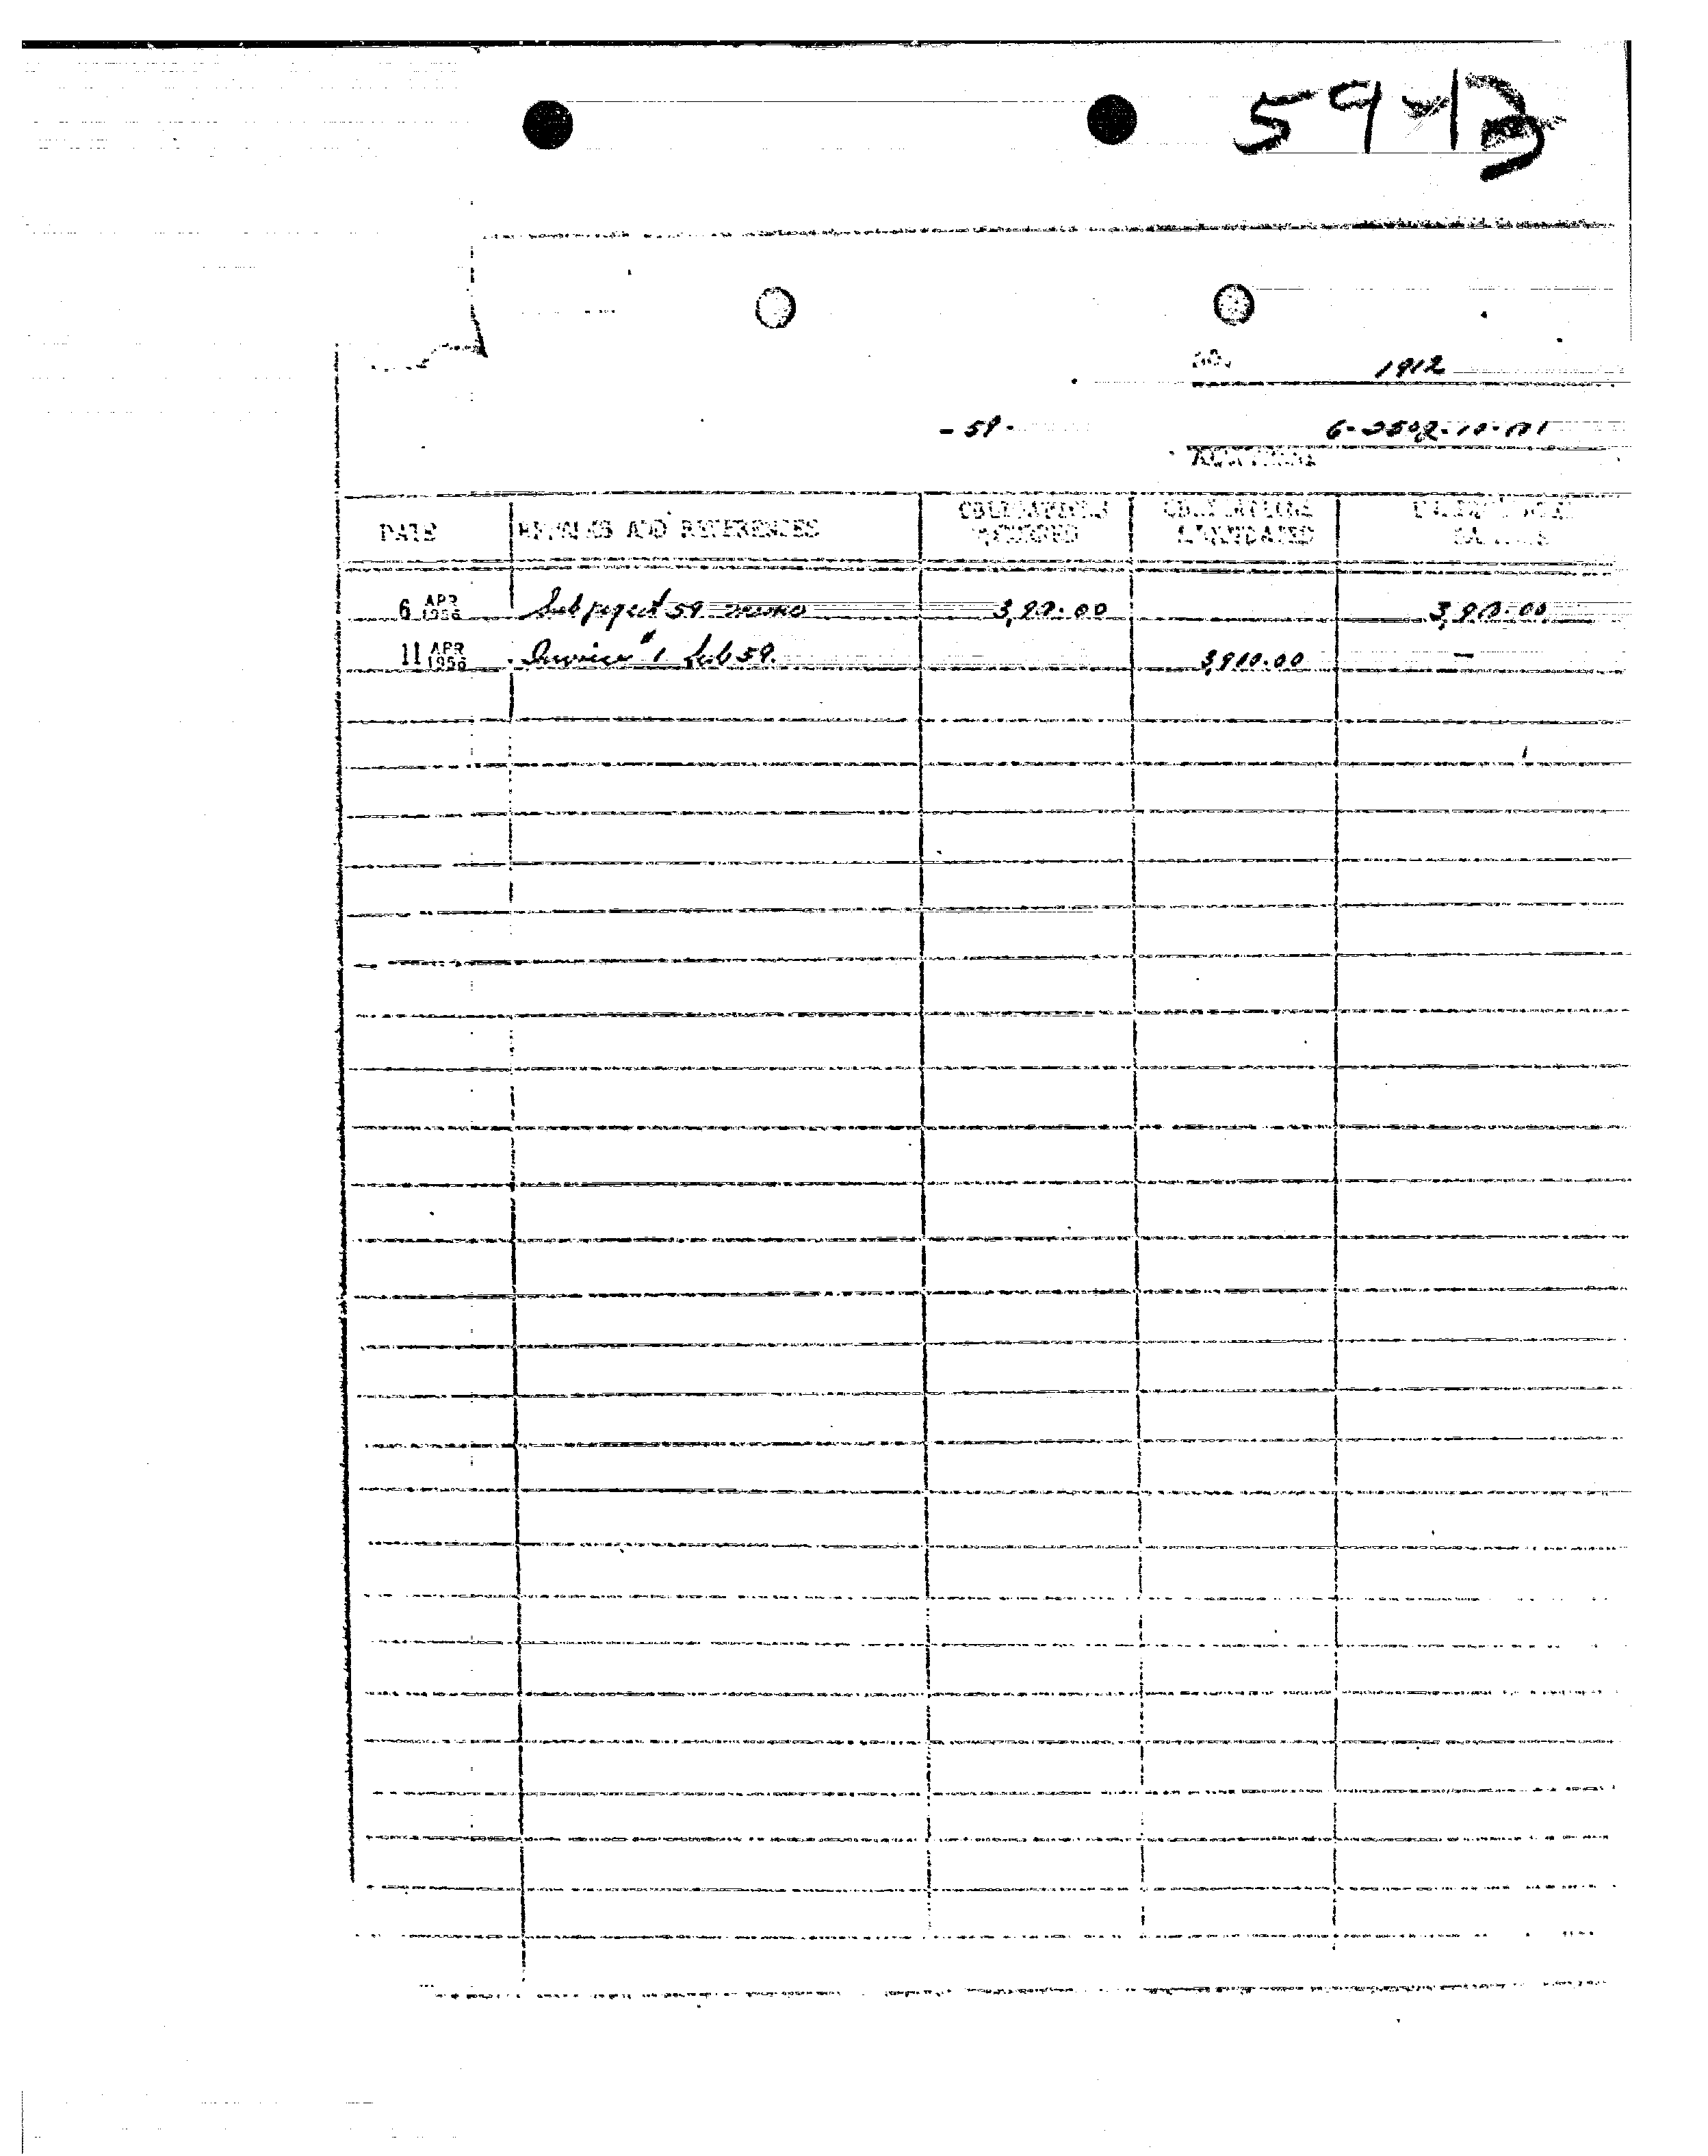 59-13
NO. 1912
- 59 -
DATE REMARKS AND REFERENCES OBLIGATIONS INCURRED OBLIGATIONS LIQUIDATED
6 APR 1956 Subproject 59 memo 3,910.00 3,910.00
11 APR 1956 Invoice #1 Sub 59. 3,910.00 —